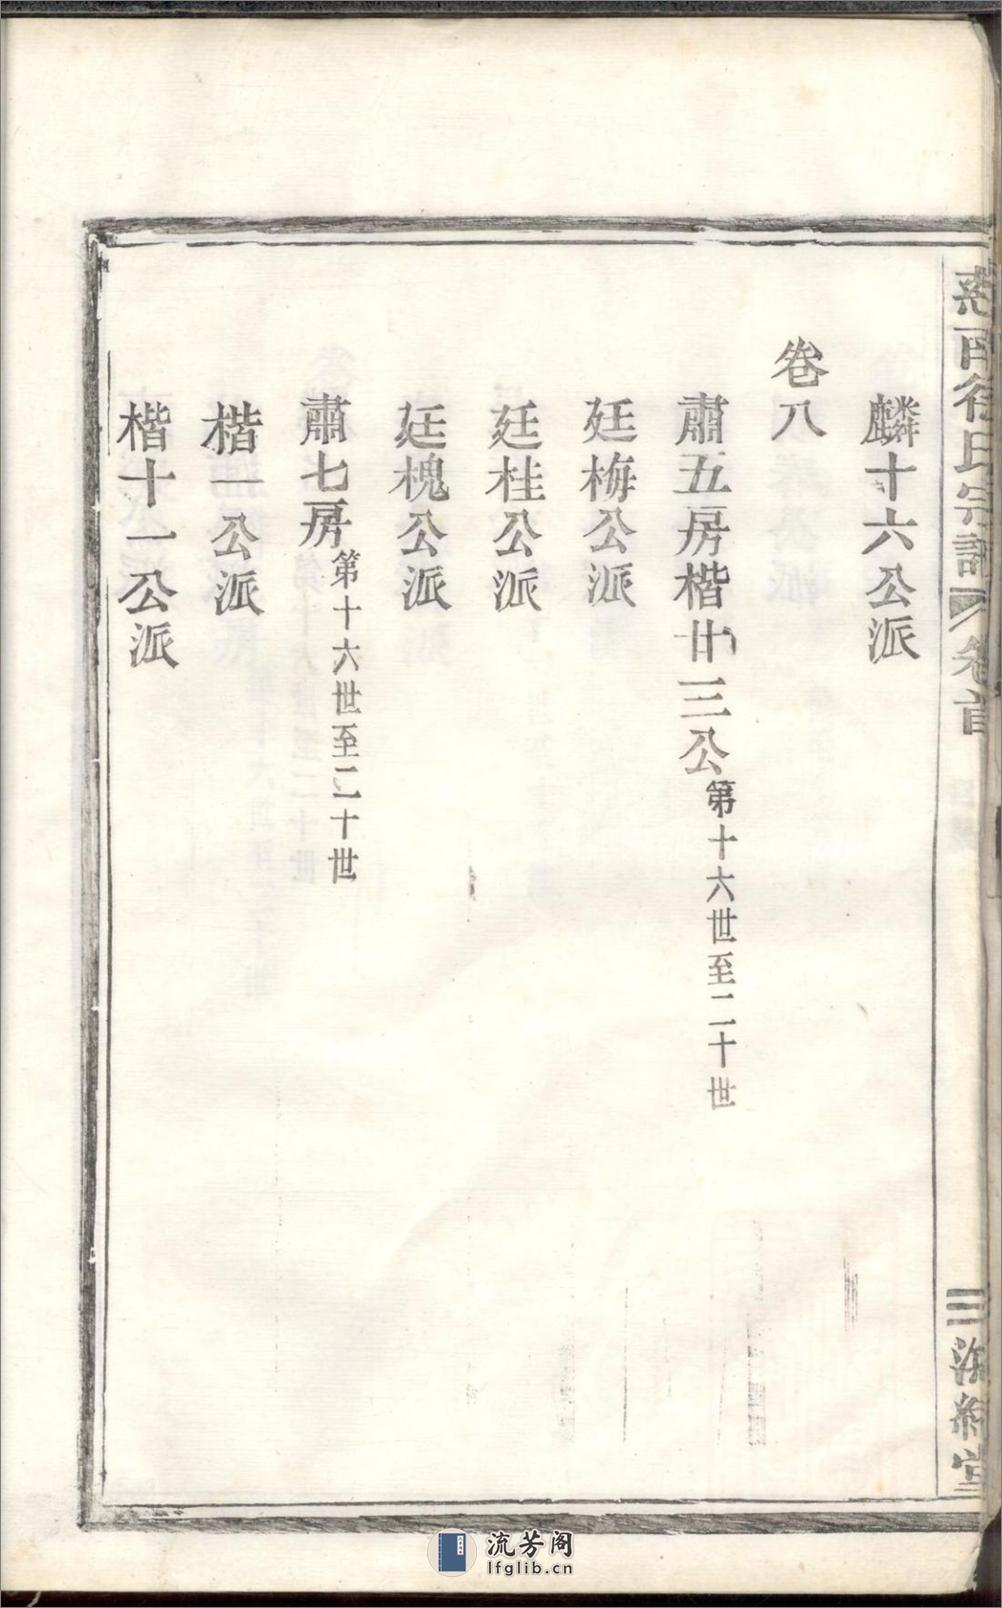 麟十六公派
卷八
肅五房楷廿三公第十六世至二十世
廷梅公派
廷桂公派
廷槐公派
肅七房第十六世至二十世
楷一公派
楷十一公派
徐氏宗譜
卷首
三
流芳阁
lfglib.cn